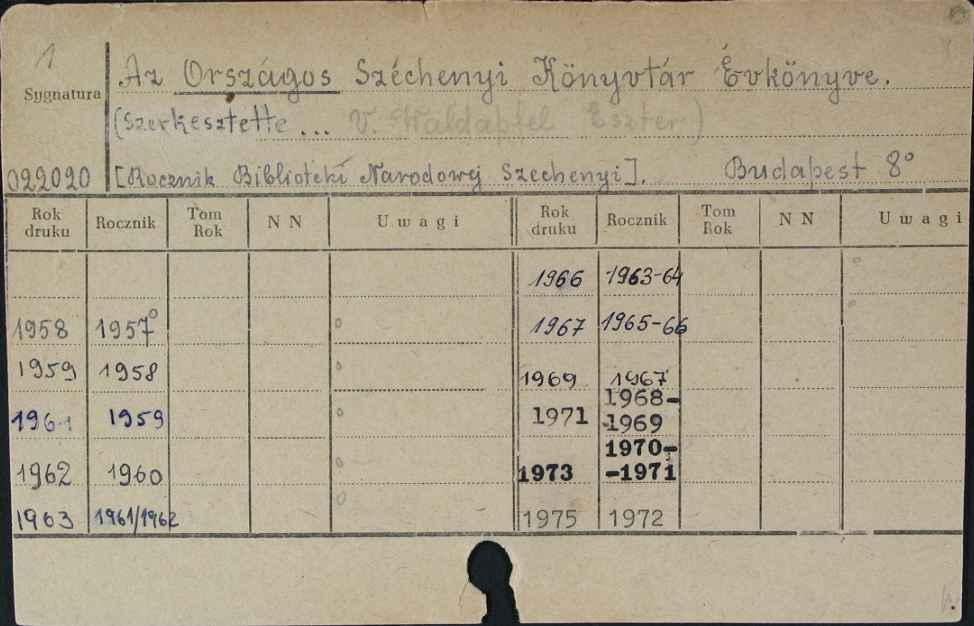 1
Az Országos Széchenyi Könyvtár Évkönyve.
Sygnatura
(Szerkesztette ... V. Waldapfel Eszter)
022020 [Rocznik Biblioteki Narodowej Szechenyi]. Budapest 8°
Rok druku Rocznik Tom Rok N N Uwagi Rok druku Rocznik Tom Rok N N Uwagi
1966 1963-64
1958 1957° 1967 1965-66
1959 1958 1969 1967
1961 1959 1971 1968-
-1969
1962 1960 1973 1970-
-1971
1963 1961/1962 1975 1972